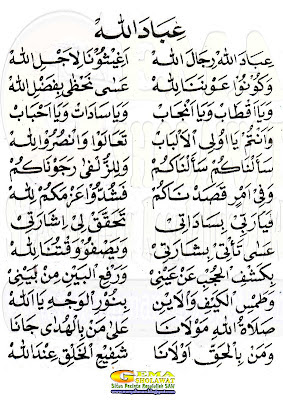 عِبَادَ اللهْ
عِبَادَ اللهْ رِجَالَ اللهْ اَغِيْثُوْنَا لِاَجْلِ اللهْ
وَكُوْنُوْا عَوْنَنَا لِلّٰهْ عَسَى نَحْظَى بِفَضْلِ اللهْ
وَيَا اَقْطَابْ وَيَا اَنْجَابْ وَيَا سَادَاتْ وَيَا اَحْبَابْ
وَاَنْتُمْ يَا اُولِى الْاَلْبَابْ تَعَالَوْا وَانْصُرُوْا لِلّٰهْ
سَأَلْنَاكُمْ سَأَلْنَاكُمْ وَلِلزُّلْفَى رَجَوْنَاكُمْ
وَفِى اَمْرٍ قَصَدْنَاكُمْ فَشُدُّوْا عَزْمَكُمْ لِلّٰهْ
فَيَارَبِّى بِسَادَاتِى تَحَقَّقْ لِى اِشَارَتِى
عَسَى تَأْتِى بِشَارَتِى وَيَصْفُوْ وَقْتُنَا لِلّٰهْ
بِكَشْفِ الْحُجْبِ عَنْ عَيْنِى وَرَفْعِ الْبَيْنِ مِنْ بَيْنِى
وَطَمْسِ الْكَيْفِ وَالْاَيْنِ بِنُوْرِ الْوَجْهِ يَا اَللهْ
صَلَاةُ اللهِ مَوْلَانَا عَلَى مَنْ بِالْهُدَى جَانَا
وَمَنْ بِالْحَقِّ اَوْلَانَا شَفِيْعِ الْخَلْقِ عِنْدَ اللهْ
GEMA
SHOLAWAT
Situs Pecinta Rasulallah SAW